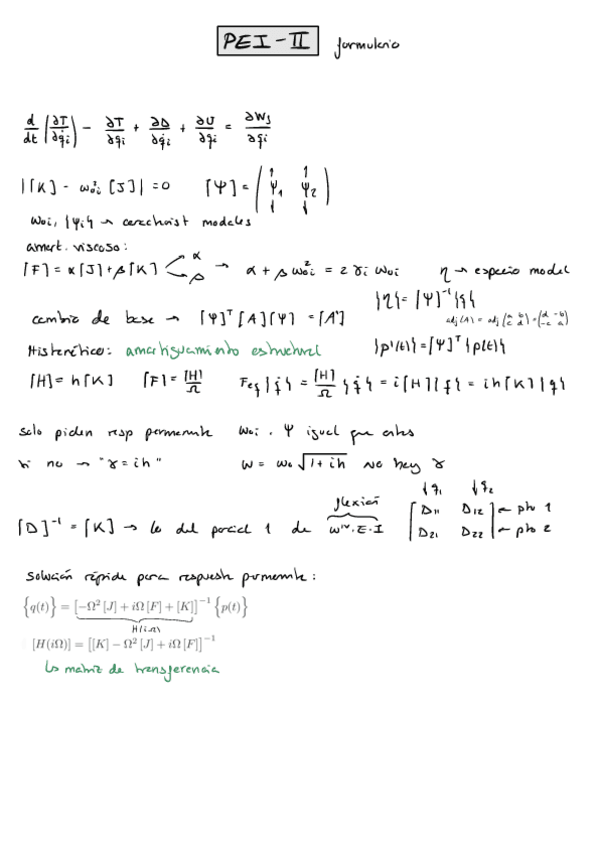 PEI-II formulario
d/dt (∂T/∂q̇i) - ∂T/∂qi + ∂D/∂q̇i + ∂U/∂qi = ∂Wf/∂qi
|[K] - ω²oi [J]| = 0 [Ψ] = (↑Ψ1↓ ↑Ψ2↓)
ωoi, {Ψi} → caractheríst modales
amort. viscoso:
[F] = α[J] + β[K] < α β → α + β ωoi² = 2 γi ωoi η → espacio modal
{η} = [Ψ]⁻¹{q}
cambio de base → [Ψ]ᵀ [A] [Ψ] = [A'] adj(A) = adj(a b c d) = (d -b -c a)
Histerético: amortiguamiento estructural {p'(t)} = [Ψ]ᵀ {p(t)}
[H] = h[K] [F] = [H]/Ω Feq{q̇} = [H]/Ω {q̇} = i[H]{q} = ih[K]{q}
solo piden resp permanente ωoi, Ψ igual que antes
si no → "γ = ih" ω = ωo √1+ih no hay γ
flexión ↓q1 ↓q2
[D]⁻¹ = [K] → lo del parcial 1 de wᴵⱽ·E·I [D11 D12] ← pto 1
[D21 D22] ← pto 2
Solución rápida para respuesta permanente:
{q(t)} = [-Ω² [J] + iΩ [F] + [K]]⁻¹ {p(t)}
H(iΩ)
[H(iΩ)] = [[K] - Ω² [J] + iΩ [F]]⁻¹
↳ matriz de transferencia